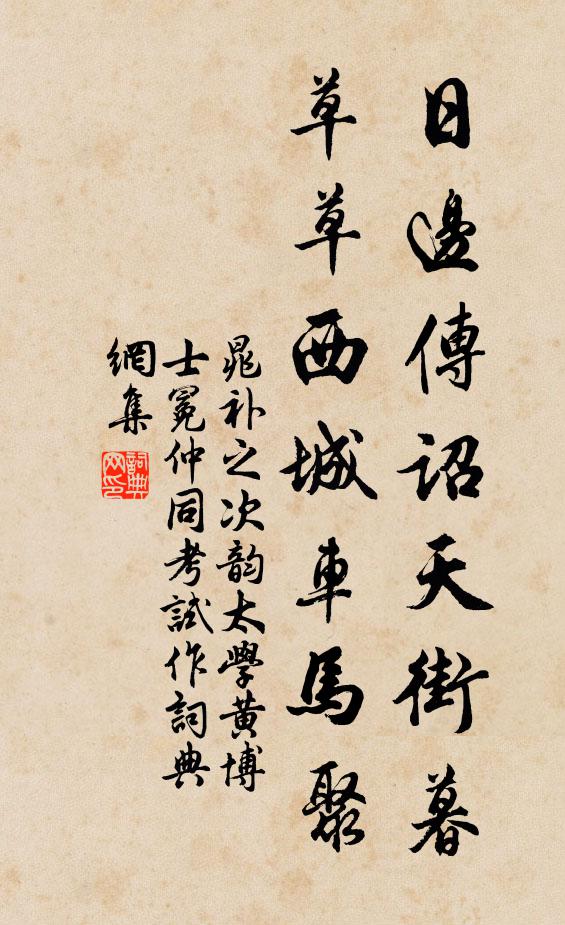 日邊傳詔天街暮
草草西城車馬聚
晁补之次韵太學黄博
士冕仲同考試作詞典
網集
詞典
网印